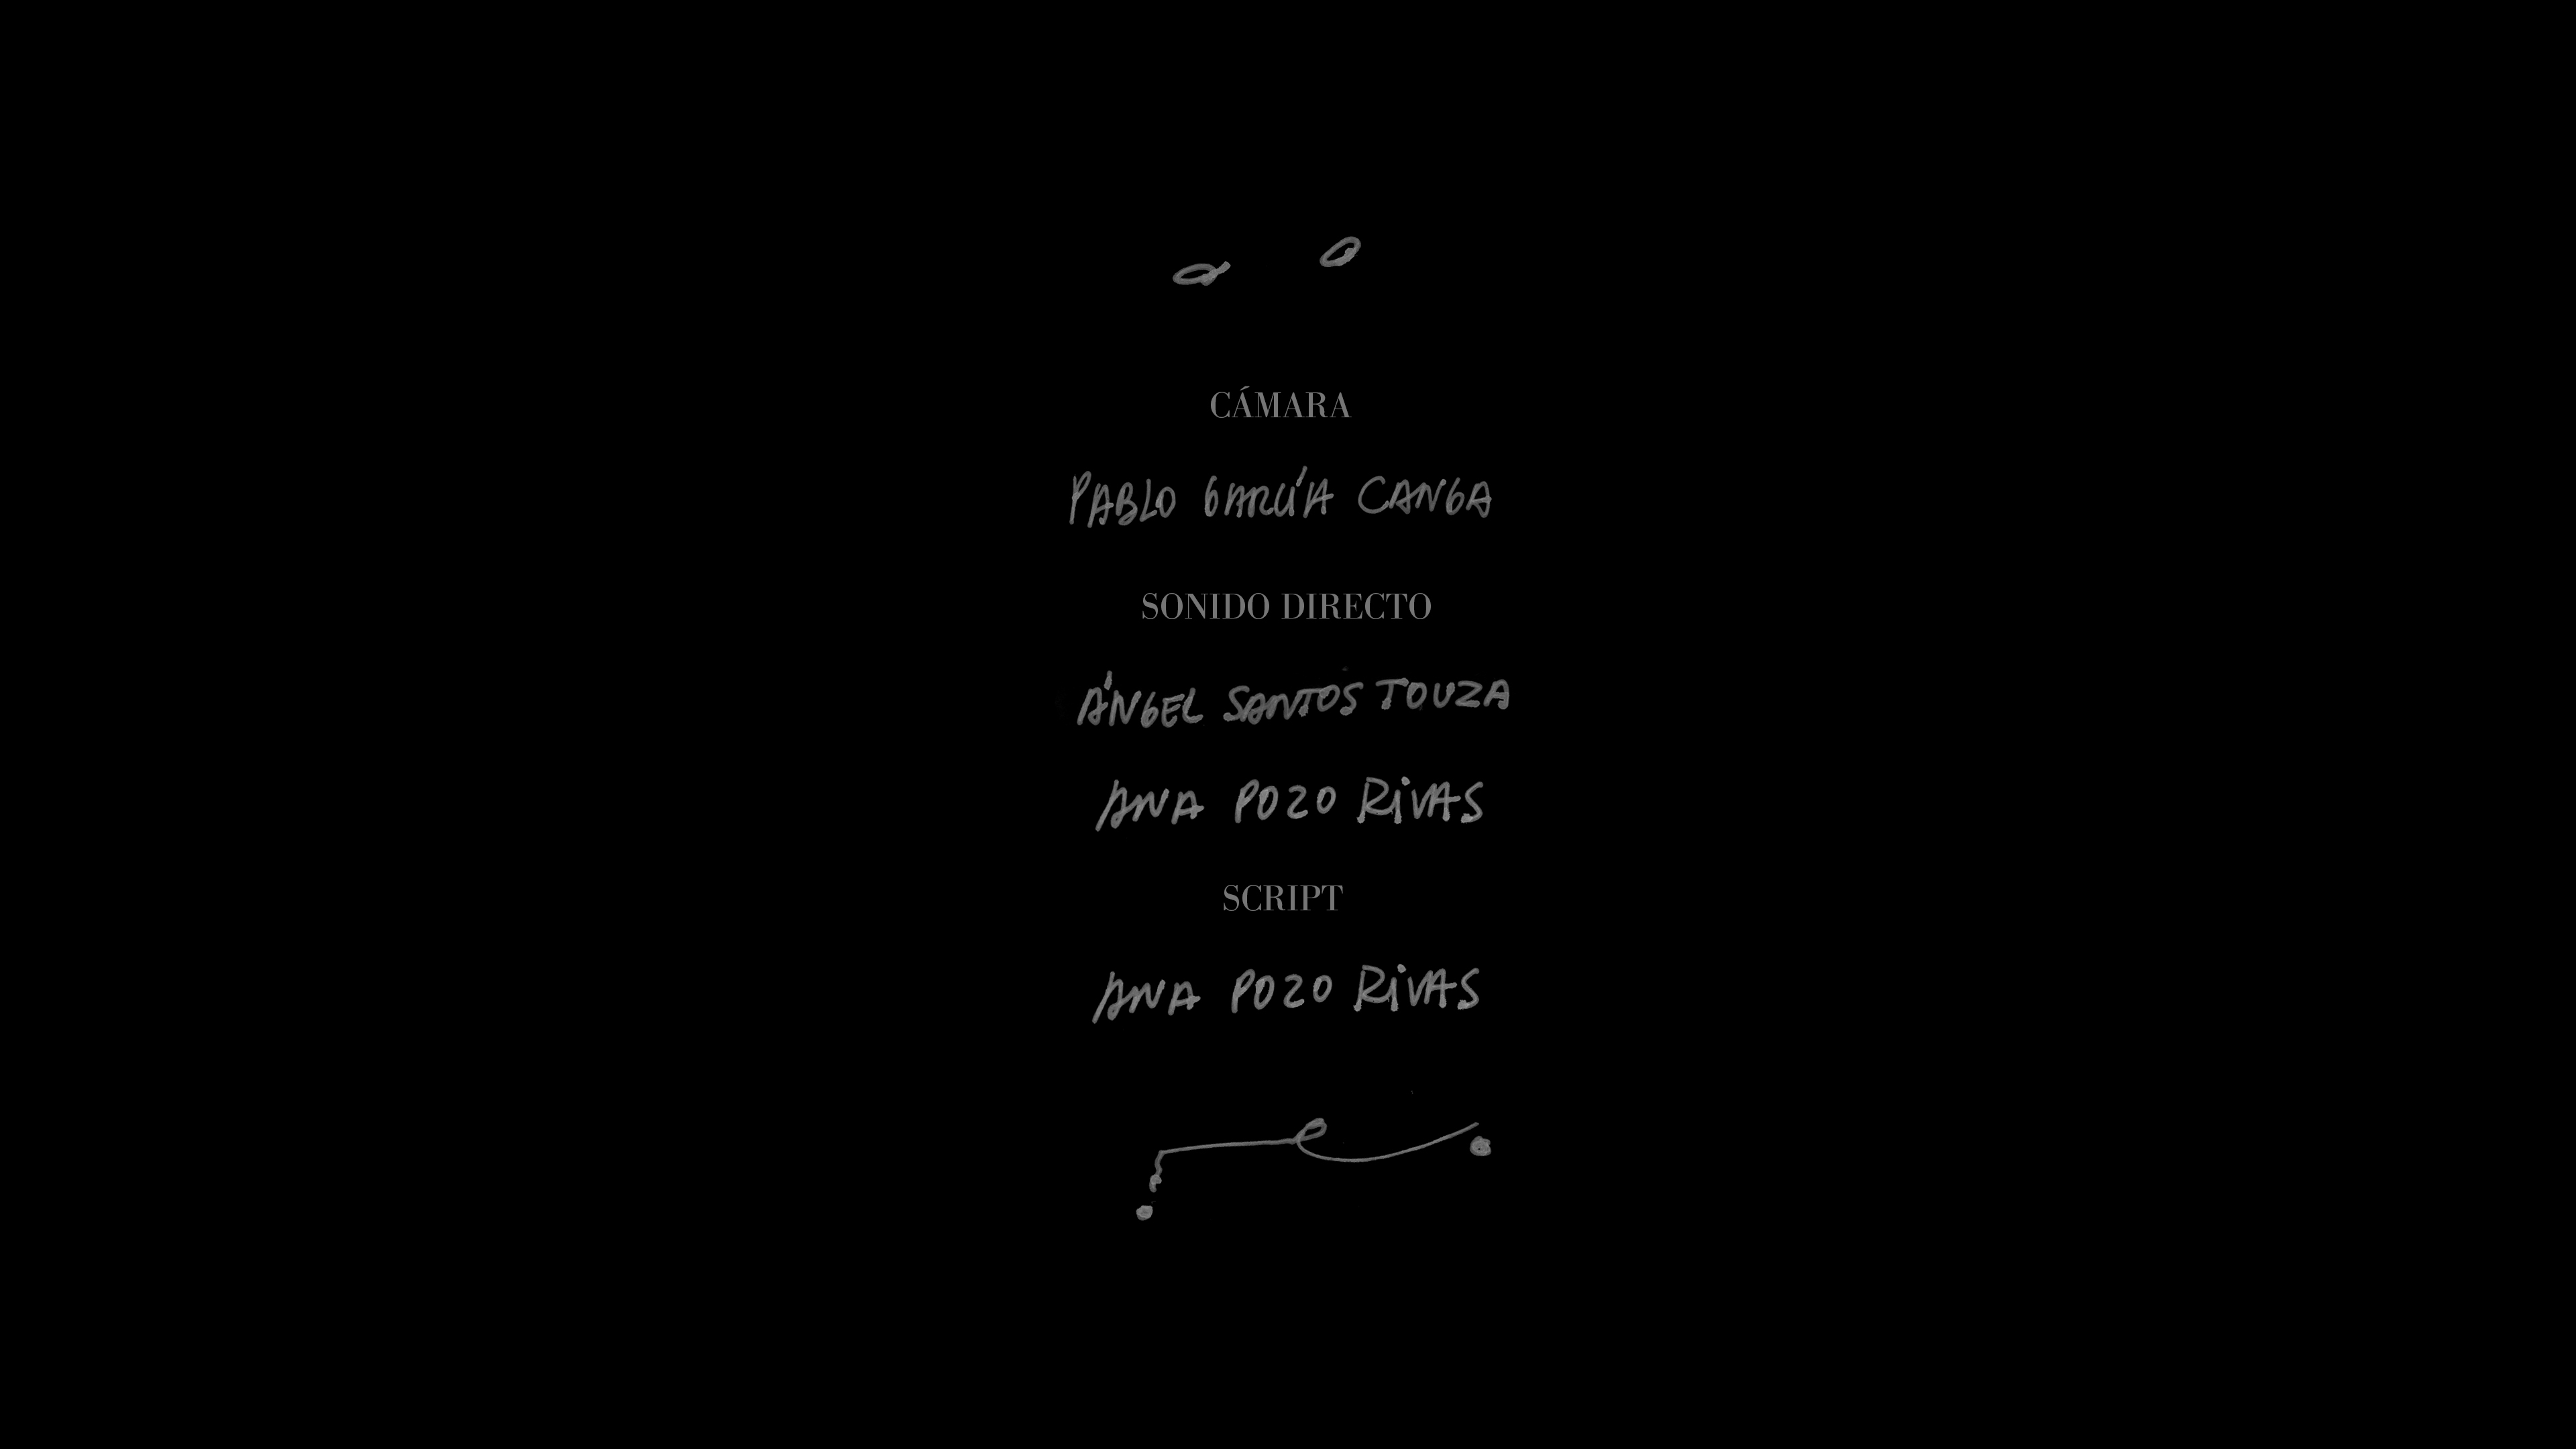 CÁMARA
PABLO GARCÍA CANGA
SONIDO DIRECTO
ÁNGEL SANTOS TOUZA
ANA POZO RIVAS
SCRIPT
ANA POZO RIVAS